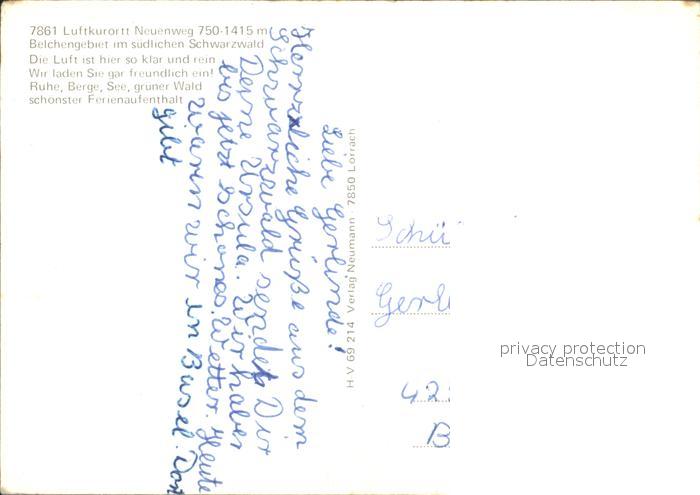 7861 Luftkurortt Neuenweg 750-1415 m
Belchengebiet im südlichen Schwarzwald
Die Luft ist hier so klar und rein
Wir laden Sie gar freundlich ein!
Ruhe, Berge, See, grüner Wald
schönster Ferienaufenthalt
Liebe Gerlinde!
Herrzliche Grüße aus dem
Schwarzwald sendet Dir
Deine Ursula. Wir haben
bis jetzt schönes Wetter. Heute
waren wir in Basel. Dort
gibt
H V 69 214 Verlag Neumann · 7850 Lörrach
Schü
Gerli
42
B
privacy protection
Datenschutz